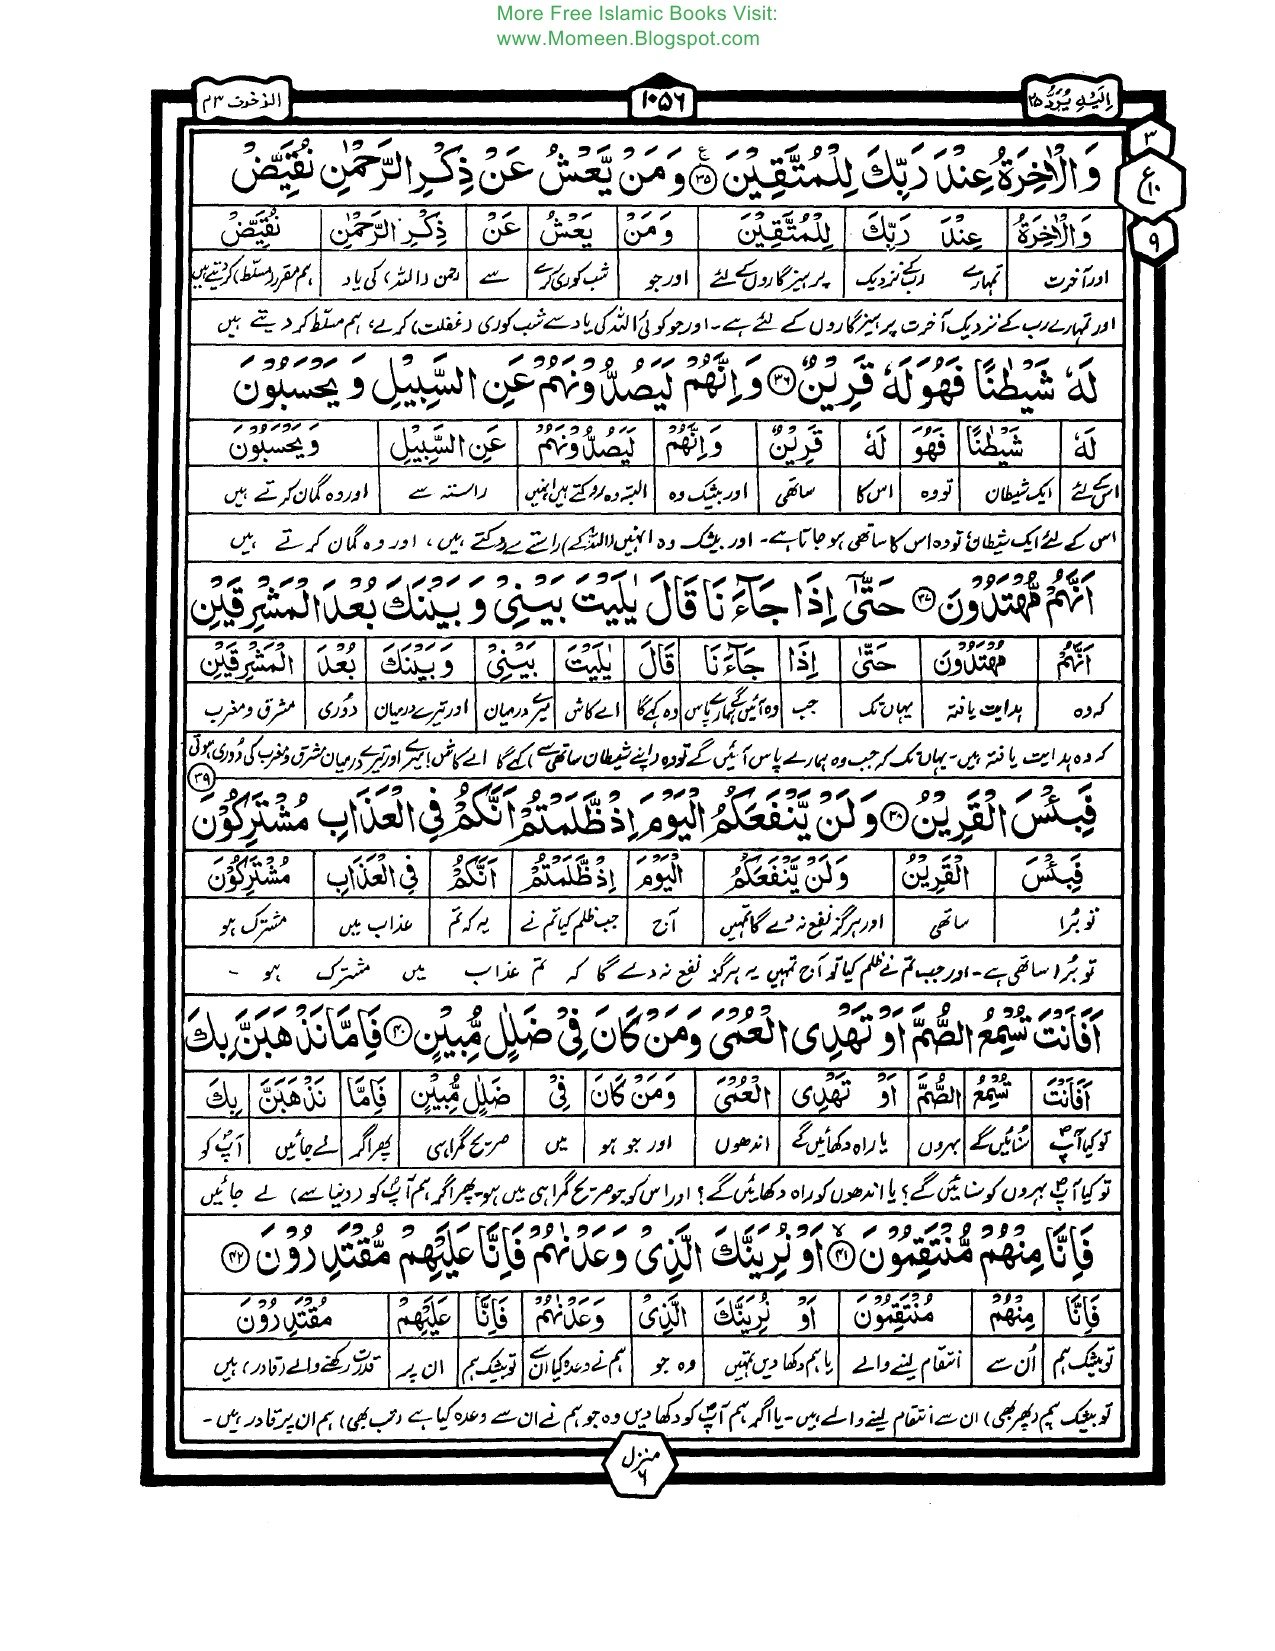 More Free Islamic Books Visit:
www.Momeen.Blogspot.com
اِلَیْهِ یُرَدُّ ۲۵
۱۰۵۶
الزخرف ۴۳
۳
ع ۱۰
۹
وَالْاٰخِرَةُ عِنْدَ رَبِّكَ لِلْمُتَّقِیْنَ ۳۵ وَمَنْ یَّعْشُ عَنْ ذِكْرِ الرَّحْمٰنِ نُقَیِّضْ
وَالْاٰخِرَةُ عِنْدَ رَبِّكَ لِلْمُتَّقِیْنَ وَمَنْ یَعْشُ عَنْ ذِكْرِ الرَّحْمٰنِ نُقَیِّضْ
اور آخرت تمہارے رب کے نزدیک پرہیزگاروں کے لئے اور جو شب کوری کرے سے رحمن (اللہ) کی یاد ہم مقرر (مسلط) کر دیتے ہیں
اور تمہارے رب کے نزدیک آخرت پرہیزگاروں کے لئے ہے۔ اور جو کوئی اللہ کی یاد سے شب کوری (غفلت) کرے، ہم مسلط کر دیتے ہیں
لَهٗ شَیْطٰنًا فَهُوَ لَهٗ قَرِیْنٌ ۳۶ وَاِنَّهُمْ لَیَصُدُّوْنَهُمْ عَنِ السَّبِیْلِ وَیَحْسَبُوْنَ
لَهٗ شَیْطٰنًا فَهُوَ لَهٗ قَرِیْنٌ وَاِنَّهُمْ لَیَصُدُّوْنَهُمْ عَنِ السَّبِیْلِ وَیَحْسَبُوْنَ
اس کے لئے ایک شیطان تو وہ اس کا ساتھی اور بیشک وہ البتہ وہ روکتے ہیں انہیں راستہ سے اور وہ گمان کرتے ہیں
اس کے لئے ایک شیطان تو وہ اس کا ساتھی ہو جاتا ہے۔ اور بیشک وہ انہیں (اللہ کے) راستے سے روکتے ہیں، اور وہ گمان کرتے ہیں
اَنَّهُمْ مُّهْتَدُوْنَ ۳۷ حَتّٰۤی اِذَا جَآءَنَا قَالَ یٰلَیْتَ بَیْنِیْ وَبَیْنَكَ بُعْدَ الْمَشْرِقَیْنِ
اَنَّهُمْ مُهْتَدُوْنَ حَتّٰی اِذَا جَآءَنَا قَالَ یٰلَیْتَ بَیْنِیْ وَبَیْنَكَ بُعْدَ الْمَشْرِقَیْنِ
کہ وہ ہدایت یافتہ یہاں تک جب وہ آئیں گے ہمارے پاس وہ کہے گا اے کاش میرے درمیان اور تیرے درمیان دوری مشرق و مغرب
کہ وہ ہدایت یافتہ ہیں۔ یہاں تک کہ جب وہ ہمارے پاس آئیں گے تو وہ (اپنے شیطان ساتھی سے) کہے گا اے کاش! میرے اور تیرے درمیان مشرق و مغرب کی دوری ہوتی
فَبِئْسَ الْقَرِیْنُ ۳۸ وَلَنْ یَّنْفَعَكُمُ الْیَوْمَ اِذْ ظَّلَمْتُمْ اَنَّكُمْ فِی الْعَذَابِ مُشْتَرِكُوْنَ ۳۹
فَبِئْسَ الْقَرِیْنُ وَلَنْ یَّنْفَعَكُمُ الْیَوْمَ اِذْ ظَّلَمْتُمْ اَنَّكُمْ فِی الْعَذَابِ مُشْتَرِكُوْنَ
تو برا ساتھی اور ہرگز نفع نہ دے گا تمہیں آج جب ظلم کیا تم نے یہ کہ تم عذاب میں مشترک ہو
تو برا ساتھی ہے۔ اور جب تم نے ظلم کیا تو آج تمہیں یہ ہرگز نفع نہ دے گا کہ تم عذاب میں مشترک ہو ۔
اَفَاَنْتَ تُسْمِعُ الصُّمَّ اَوْ تَهْدِی الْعُمْیَ وَمَنْ كَانَ فِیْ ضَلٰلٍ مُّبِیْنٍ ۴۰ فَاِمَّا نَذْهَبَنَّ بِكَ
اَفَاَنْتَ تُسْمِعُ الصُّمَّ اَوْ تَهْدِی الْعُمْیَ وَمَنْ كَانَ فِیْ ضَلٰلٍ مُّبِیْنٍ فَاِمَّا نَذْهَبَنَّ بِكَ
تو کیا آپؐ سنائیں گے بہروں یا راہ دکھائیں گے اندھوں اور جو ہو میں صریح گمراہی پھر اگر لے جائیں آپؐ کو
تو کیا آپؐ بہروں کو سنائیں گے؟ یا اندھوں کو راہ دکھائیں گے؟ اور اس کو جو صریح گمراہی میں ہو۔ پھر اگر ہم آپؐ کو (دنیا سے) لے جائیں
فَاِنَّا مِنْهُمْ مُّنْتَقِمُوْنَ ۴۱ اَوْ نُرِیَنَّكَ الَّذِیْ وَعَدْنٰهُمْ فَاِنَّا عَلَیْهِمْ مُّقْتَدِرُوْنَ ۴۲
فَاِنَّا مِنْهُمْ مُنْتَقِمُوْنَ اَوْ نُرِیَنَّكَ الَّذِیْ وَعَدْنٰهُمْ فَاِنَّا عَلَیْهِمْ مُقْتَدِرُوْنَ
تو بیشک ہم اُن سے انتقام لینے والے یا ہم دکھا دیں تمہیں وہ جو ہم نے وعدہ کیا ان سے تو بیشک ہم ان پر قدرت رکھنے والے (قادر) ہیں
تو بیشک ہم (پھر بھی) ان سے انتقام لینے والے ہیں۔ یا اگر ہم آپؐ کو دکھا دیں وہ جو ہم نے ان سے وعدہ کیا ہے (تب بھی) ہم ان پر قادر ہیں۔
منزل ۶